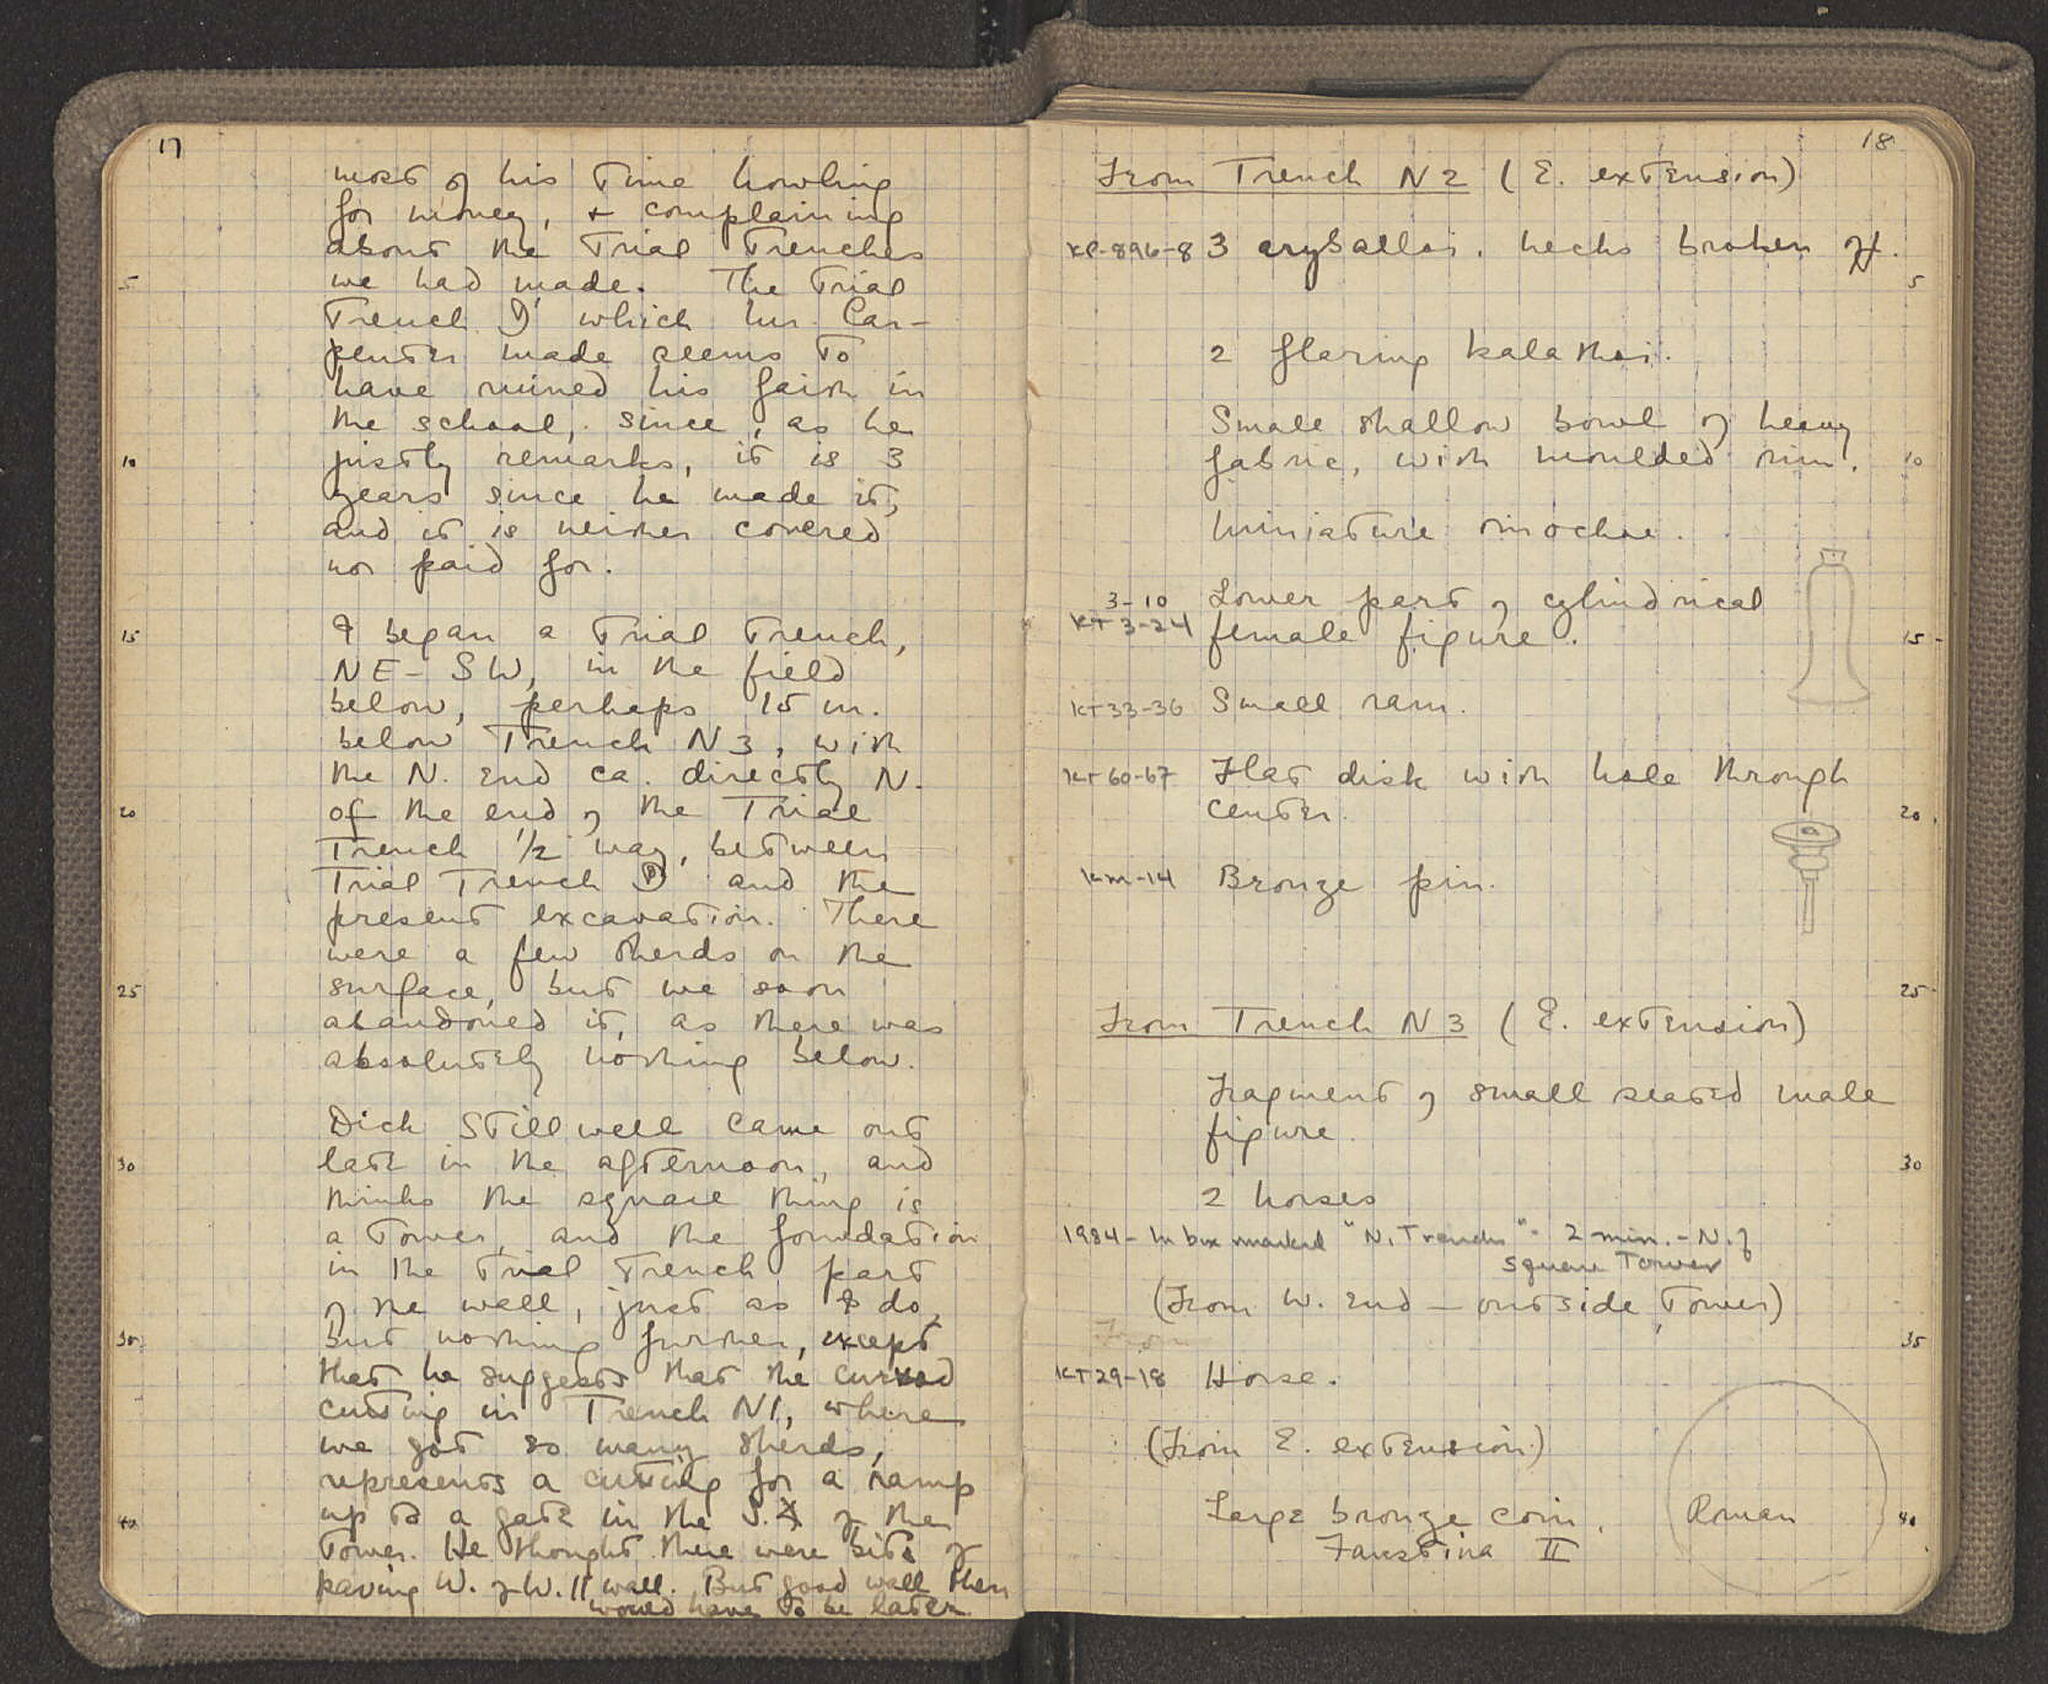 17
most of his time howling
for money, + complaining
about the Trial Trenches
5 we had made. The Trial
Trench D which his Car-
penter made seems to
have ruined his faith in
the school, since, as he
10 justly remarks, it is 3
years since he made it,
and it is neither covered
nor paid for.
15 I began a Trial Trench,
NE-SW, in the field
below, perhaps 15 m.
below Trench N3, with
the N. end ca. directly N.
20 of the end of the Trial
Trench 1/2 way, between
Trial Trench D and the
present excavation. There
were a few sherds on the
25 surface, but we soon
abandoned it, as there was
absolutely nothing below.
Dick Stillwell came out
30 late in the afternoon, and
thinks the square thing is
a Tower, and the foundation
in the Trial Trench part
of the wall, just as I do,
35 but nothing further, except
that he suggests that the curved
cutting in Trench N1, where
we got so many sherds,
represents a cutting for a ramp
40 up to a gate in the S. of the
Tower. He thought there were bits of
paving W. of W. || wall. But good wall then
would have to be later
18
From Trench N2 (E. extension)
KP-896-8 3 aryballoi. necks broken off.
5
2 flaring kalathoi.
Small shallow bowl of heavy
fabric, with moulded rim. 10
Miniature oinochoe.
3-10 Lower part of cylindrical
KT 3-24 female figure. 15
KT 33-36 Small ram.
KT 60-67 Flat disk with hole through
center. 20
KM-14 Bronze pin.
25
From Trench N3 (E. extension)
Fragment of small seated male
figure.
30
2 horses
1984 - In box marked "N. Trenches" - 2 min. - N. of
Square Tower
(From W. end - outside Tower)
From 35
KT 29-18 Horse.
(From E. extension)
Large bronze coin. Roman 40
Faustina II